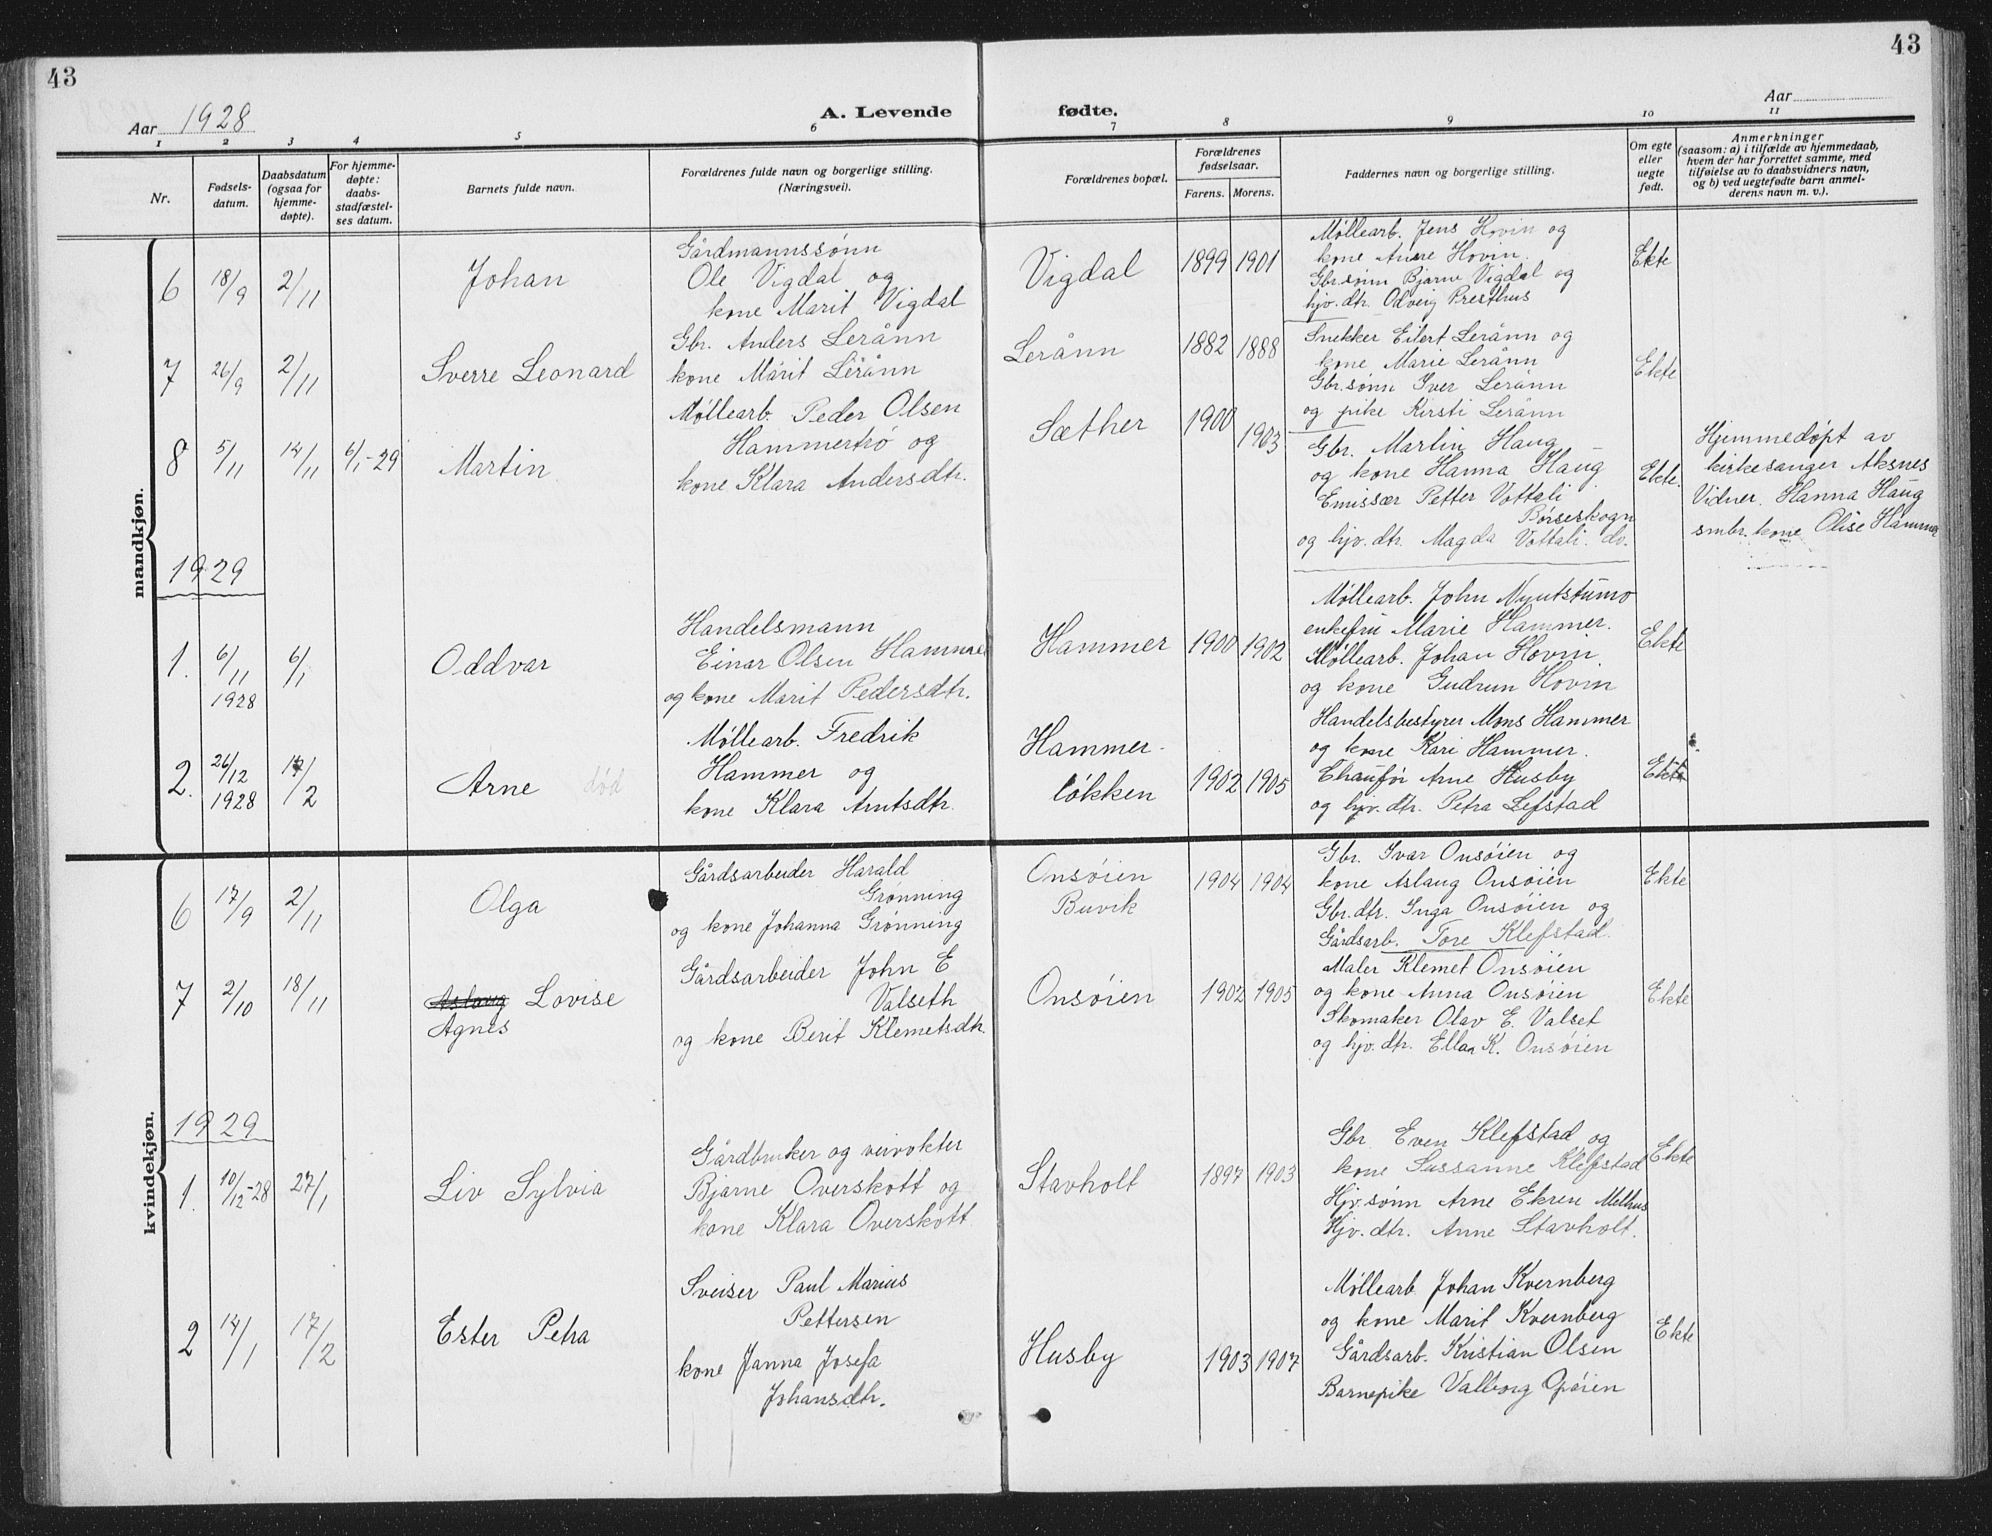 43
43
Aar 1928
A. Levende fødte.
Aar
1 2 3 4 5 6 7 8 9 10 11
Nr.
Fødsels-
datum.
Daabsdatum
(ogsaa for
hjemme-
døpte).
For hjemme-
døpte:
daabs-
stadfæstel-
ses datum.
Barnets fulde navn.
Forældrenes fulde navn og borgerlige stilling.
(Næringsvei).
Forældrenes bopæl.
Forældrenes
fødselsaar.
Farens. Morens.
Faddernes navn og borgerlige stilling.
Om egte
eller
uegte
født.
Anmerkninger
(saasom: a) i tilfælde av hjemmedaab,
hvem der har forrettet samme, med
tilføielse av to daabsvidners navn,
og b) ved uegtefødte barn anmel-
derens navn m. v.).
mandkjøn.
6 18/9 2/11 Johan
Gårdmannssønn
Ole Vigdal og
kone Marit Vigdal
Vigdal 1899 1901
Møllearb. Jens Hovin og
kone Anne Hovin.
Gbr.sønn Bjarne Vigdal og
hjv. dtr. Odveig Presthus
Ekte
7 26/9 2/11 Sverre Leonard
Gbr. Anders Lerånn
kone Marit Lerånn
Lerånn 1882 1888
Snekker Eilert Lerånn og
kone Marie Lerånn
Gbr.sønn Iver Lerånn
og pike Kirsti Lerånn
Ekte
8 5/11 14/11 6/1-29 Martin
Møllearb. Peder Olsen
Hammertrø og
kone Klara Andersdtr.
Sæther 1900 1903
Gbr. Martin Haug
og kone Hanna Haug
Emissær Petter Vottali
Børseskogn
og hjv. dtr. Magda Vottali. do.
Ekte.
Hjemmedøpt av
kirkesanger Aksnes
Vidner. Hanna Haug
smbr. kone Olise Hammer
1929
1. 6/11 1928 6/1 Oddvar
Handelsmann
Einar Olsen Hammer
og kone Marit Pedersdtr.
Hammer 1900 1902
Møllearb. John Nyutstumo
enkefru Marie Hammer.
Møllearb. Johan Hovin.
og kone Gudrun Hovin
Ekte
2. 26/12 1928 17/2 Arne død
Møllearb. Fredrik
Hammer og
kone Klara Arntsdtr.
Hammer-
løkken 1902 1905
Handelsbestyrer Mons Hammer
og kone Kari Hammer.
Chaufør Arne Husby
og hjv. dtr. Petra Lefstad
Ekte
kvindekjøn.
6 17/9 2/11 Olga
Gårdsarbeider Harald
Grønning
og kone Johanna Grønning
Onsøien
Buvik 1904 1904
Gbr. Ivar Onsøien og
kone Aslaug Onsøien
Gbr.dtr. Inga Onsøien og
Gårdsarb. Tore Klefstad.
Ekte
7 2/10 18/11 Aslaug Lovise
Agnes
Gårdsarbeider John E
Valseth
og kone Berit Klemetsdtr.
Onsøien 1902 1905
Maler Klemet Onsøien
og kone Anna Onsøien
Skomaker Olav E. Valset
og hjv. dtr. Ella K. Onsøien
Ekte
1929
1. 10/12-28 27/1 Liv Sylvia
Gårdbruker og veivokter
Bjarne Overskott og
kone Klara Overskott
Stavholt 1897 1903
Gbr. Even Klefstad og
kone Sussanne Klefstad
Hjv. sønn Arne Ekren Melhus
Hjv. dtr. Anne Stavholt.
Ekte
2 14/1 17/2 Ester Petra
Sveiser Paul Marius
Pettersen
kone Janna Josefa
Johansdtr.
Husby 1903 1907
Møllearb Johan Kvernberg
og kone Marit Kvernberg
Gårdsarb. Kristian Olsen
Barnepike Valborg Opøien
Ekte